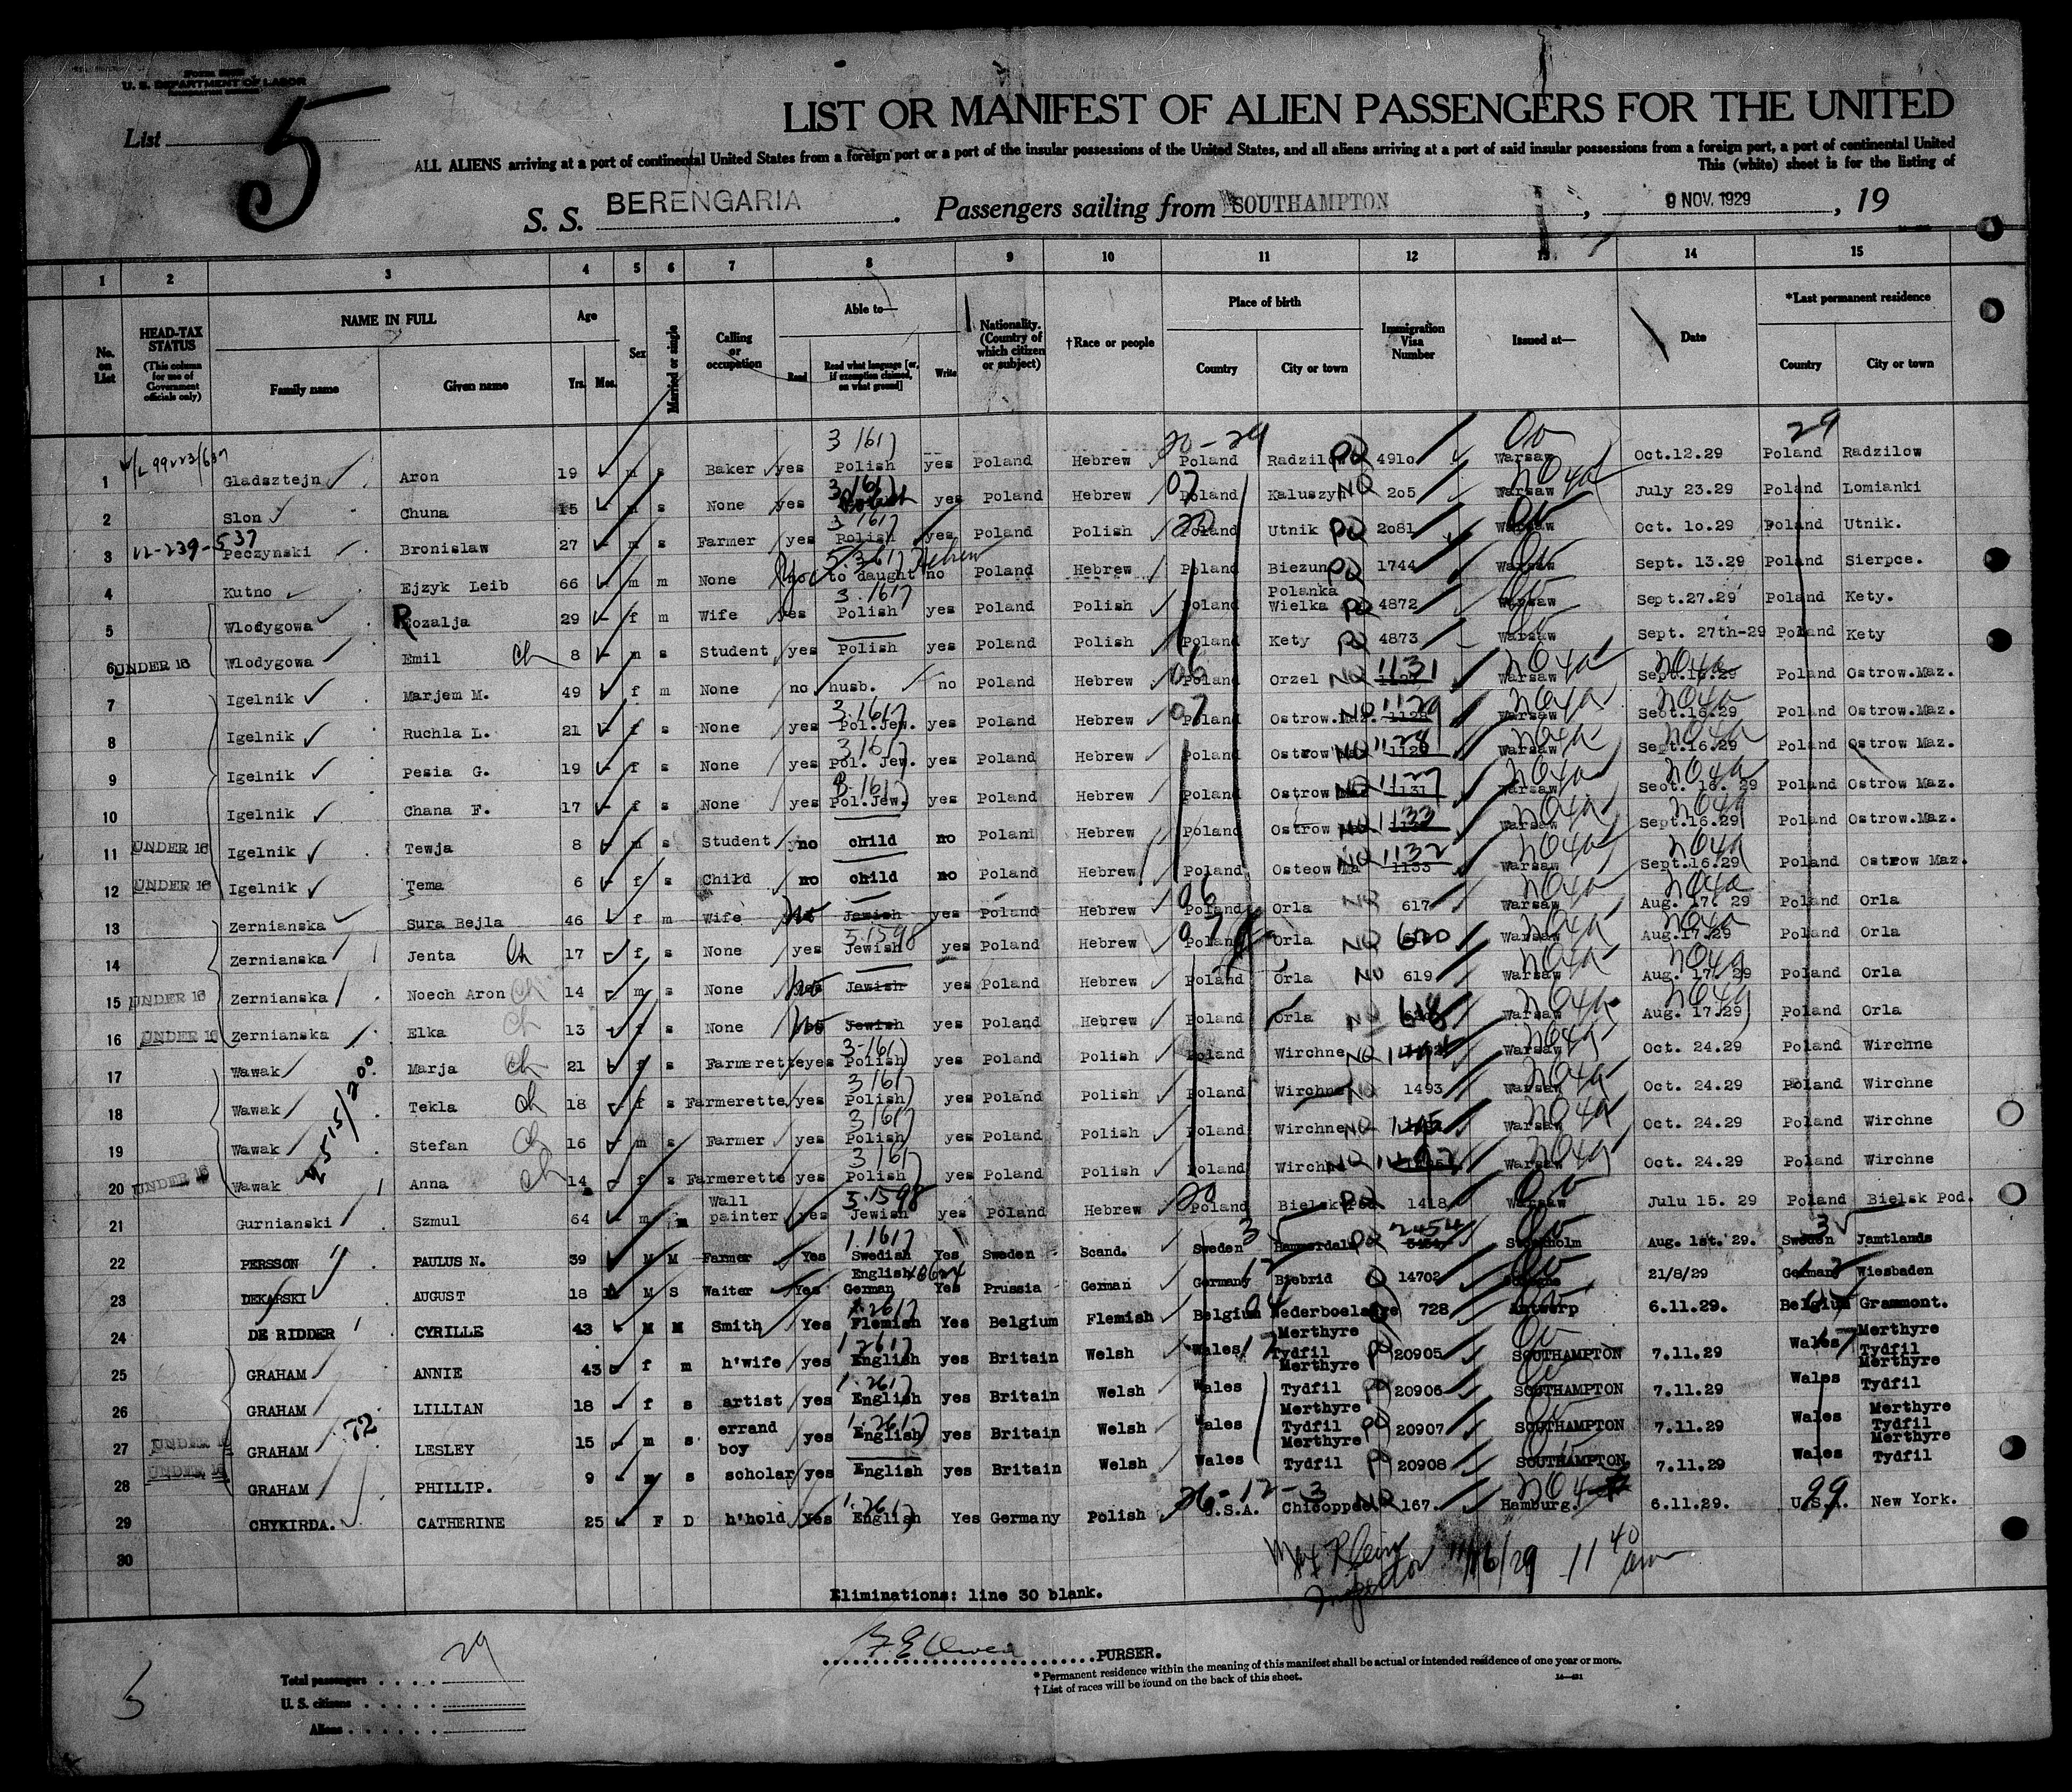 U. S. DEPARTMENT OF LABOR
List 5
LIST OR MANIFEST OF ALIEN PASSENGERS FOR THE UNITED
ALL ALIENS arriving at a port of continental United States from a foreign port or a port of the insular possessions of the United States, and all aliens arriving at a port of said insular possessions from a foreign port, a port of continental United
This (white) sheet is for the listing of
S. S. BERENGARIA. Passengers sailing from SOUTHAMPTON, 9 NOV. 1929, 19
1 2 3 4 5 6 7 8 9 10 11 12 13 14 15
No. on List
HEAD-TAX STATUS (This column for use of Government officials only)
NAME IN FULL Family name Given name
Age Yrs. Mos.
Sex
Married or single
Calling or occupation
Able to— Read Read what language [or, if exemption claimed, on what ground] Write
Nationality. (Country of which citizen or subject)
†Race or people
Place of birth Country City or town
Immigration Visa Number
Issued at—
Date
*Last permanent residence Country City or town
1 Gladsztejn Aron 19 m s Baker yes Polish yes Poland Hebrew Poland Radzilow PQ 4910 Warsaw Oct.12.29 Poland Radzilow
2 Slon Chuna 15 m s None yes yes Poland Hebrew Poland Kaluszyn NQ 205 Warsaw July 23.29 Poland Lomianki
3 Peczynski Bronislaw 27 m s Farmer yes Polish yes Poland Polish Poland Utnik PQ 2081 Warsaw Oct. 10.29 Poland Utnik.
4 Kutno Ejzyk Leib 66 m m None to daught no Poland Hebrew Poland Biezun PQ 1744 Warsaw Sept. 13.29 Poland Sierpce.
5 Wlodygowa Rozalja 29 f m Wife yes Polish yes Poland Polish Poland Polanka Wielka PQ 4872 Warsaw Sept.27.29 Poland Kety.
6 UNDER 16 Wlodygowa Emil ch 8 m s Student yes Polish yes Poland Polish Poland Kety PQ 4873 Warsaw Sept. 27th-29 Poland Kety
7 Igelnik Marjem M. 49 f m None no husb. no Poland Hebrew Poland Orzel NQ 1131 Warsaw Sept.16.29 Poland Ostrow.Maz.
8 Igelnik Ruchla L. 21 f s None yes Pol.Jew. yes Poland Hebrew Poland Ostrow.Maz. NQ 1129 Warsaw Sept.16.29 Poland Ostrow.Maz.
9 Igelnik Pesia G. 19 f s None yes Pol. Jew. yes Poland Hebrew Poland Ostrow NQ 1128 Warsaw Sept.16.29 Poland Ostrow Maz.
10 Igelnik Chana F. 17 f s None yes Pol.Jew. yes Poland Hebrew Poland Ostrow Maz NQ 1127 1131 Warsaw Sept. 16. 29 Poland Ostrow Maz.
11 UNDER 16 Igelnik Tewja 8 m s Student no child no Poland Hebrew Poland Ostrow NQ 1133 Warsaw Sept.16.29 Poland Ostrow.Maz.
12 UNDER 16 Igelnik Tema 6 f s Child no child no Poland Hebrew Poland Osteow Ma NQ 1132 1133 Warsaw Sept.16.29 Poland Ostrow Maz.
13 Zernianska Sura Bejla 46 f m Wife no Jewish yes Poland Hebrew Poland Orla NQ 617 Warsaw Aug. 17. 29 Poland Orla
14 Zernianska Jenta ch 17 f s None yes Jewish yes Poland Hebrew Poland Orla NQ 620 Warsaw Aug.17.29 Poland Orla
15 UNDER 16 Zernianska Noech Aron ch 14 m s None no Jewish yes Poland Hebrew Poland Orla NQ 619 Warsaw Aug. 17. 29 Poland Orla
16 UNDER 16 Zernianska Elka ch 13 f s None no Jewish yes Poland Hebrew Poland Orla NQ 618 Warsaw Aug. 17.29 Poland Orla
17 Wawak Marja ch 21 f s Farmerette yes Polish yes Poland Polish Poland Wirchne NQ Warsaw Oct. 24.29 Poland Wirchne
18 Wawak Tekla ch 18 f s Farmerette yes Polish yes Poland Polish Poland Wirchne NQ 1493 Warsaw Oct. 24.29 Poland Wirchne
19 Wawak Stefan ch 16 m s Farmer yes Polish yes Poland Polish Poland Wirchne NQ Warsaw Oct. 24.29 Poland Wirchne
20 UNDER 16 Wawak Anna ch 14 f s Farmerette yes Polish yes Poland Polish Poland Wirchne NQ Warsaw Oct. 24.29 Poland Wirchne
21 Gurnianski Szmul 64 m m Wall painter yes Jewish yes Poland Hebrew Poland Bielsk Pod PQ 1418 Warsaw Julu 15. 29 Poland Bielsk Pod.
22 PERSSON PAULUS N. 39 M M Farmer Yes Swedish Yes Sweden Scand. Sweden Hammerdale PQ 2454 Stockholm Aug. 1st. 29. Sweden Jamtlands
23 DEKARSKI AUGUST 18 M S Waiter Yes English German Yes Prussia German Germany Biebrid Q 14702 Cologne 21/8/29 Germany Wiesbaden
24 DE RIDDER CYRILLE 43 M M Smith Yes Flemish Yes Belgium Flemish Belgium 728 Antwerp 6.11.29. Belgium Grammont.
25 GRAHAM ANNIE 43 f m h'wife yes English yes Britain Welsh Wales Merthyre Tydfil PQ 20905 SOUTHAMPTON 7.11.29 Wales Merthyre Tydfil
26 GRAHAM LILLIAN 18 f s artist yes English yes Britain Welsh Wales Merthyre Tydfil PQ 20906 SOUTHAMPTON 7.11.29 Wales Merthyre Tydfil
27 UNDER 16 GRAHAM LESLEY 15 m s errand boy yes English yes Britain Welsh Wales Merthyre Tydfil PQ 20907 SOUTHAMPTON 7.11.29 Wales Merthyre Tydfil
28 UNDER 16 GRAHAM PHILLIP. 9 m s scholar yes English yes Britain Welsh Wales Merthyre Tydfil PQ 20908 SOUTHAMPTON 7.11.29 Wales Merthyre Tydfil
29 CHYKIRDA. CATHERINE 25 F D h'hold Yes English Yes Germany Polish U.S.A. Chicoppee NQ 167. Hamburg. 6.11.29. U.S.A. New York.
30
Max Klein Inspector 11/16/29 11 40 am
Eliminations: line 30 blank.
PURSER.
* Permanent residence within the meaning of this manifest shall be actual or intended residence of one year or more.
† List of races will be found on the back of this sheet.
Total passengers 29
U. S. citizens
Aliens
5